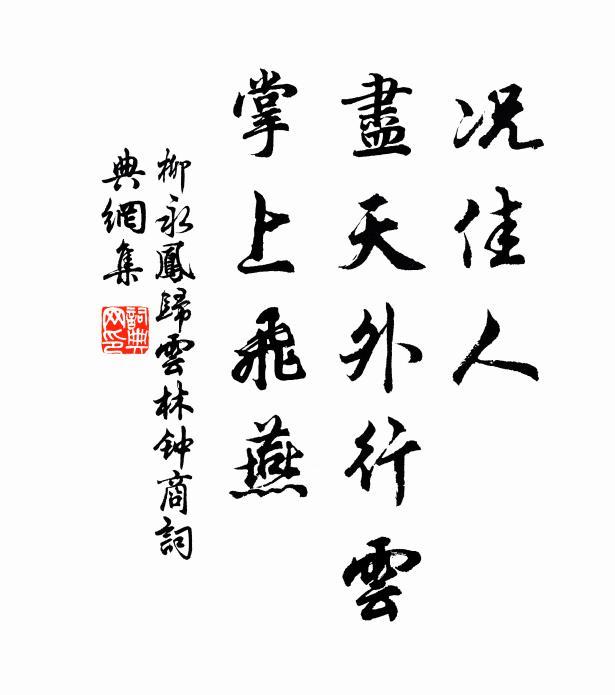 况佳人
盡天外行雲
掌上飛燕
柳永鳳歸雲林钟商詞
典網集
詞典
网印